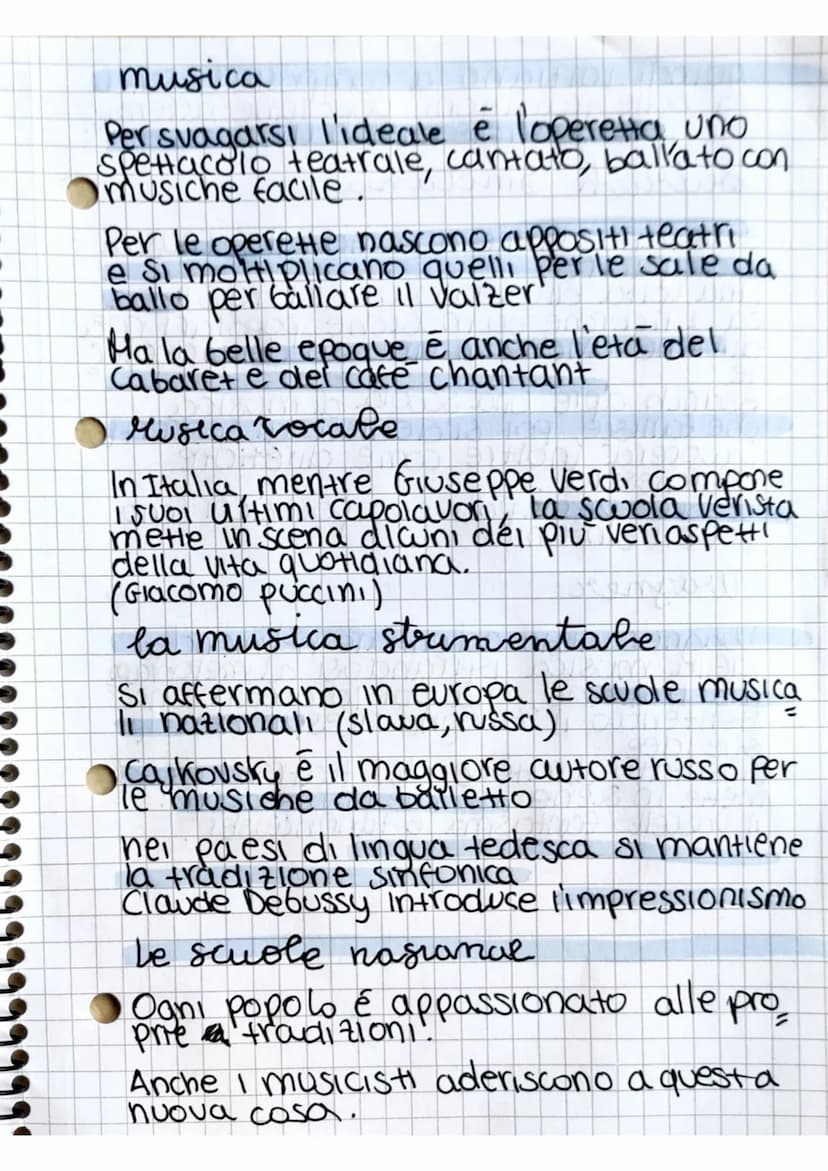 musica
Per svagarsi l'ideale è l'operetta, uno
spettacolo teatrale, cantato, ballato con
musiche facile.
Per le operette nascono appositi teatri
e si moltiplicano quelli per le sale da
ballo per ballare il valzer
Ma la belle epoque è anche l'età del
cabaret e del cafè chantant
Musica vocale
In Italia, mentre Giuseppe Verdi compone
i suoi ultimi capolavori, la scuola verista
mette in scena alcuni dei più veri aspetti
della vita quotidiana.
(Giacomo puccini)
la musica strumentale
Si affermano in europa le scuole musica=
li nazionali (slava, russa)
Cajkovsky è il maggiore autore russo per
le musiche da balletto
nei paesi di lingua tedesca si mantiene
la tradizione sinfonica
Claude Debussy introduce l'impressionismo
Le scuole
Ogni popolo è appassionato alle pro=
prie tradizioni.
Anche i musicisti aderiscono a questa
nuova cosa.